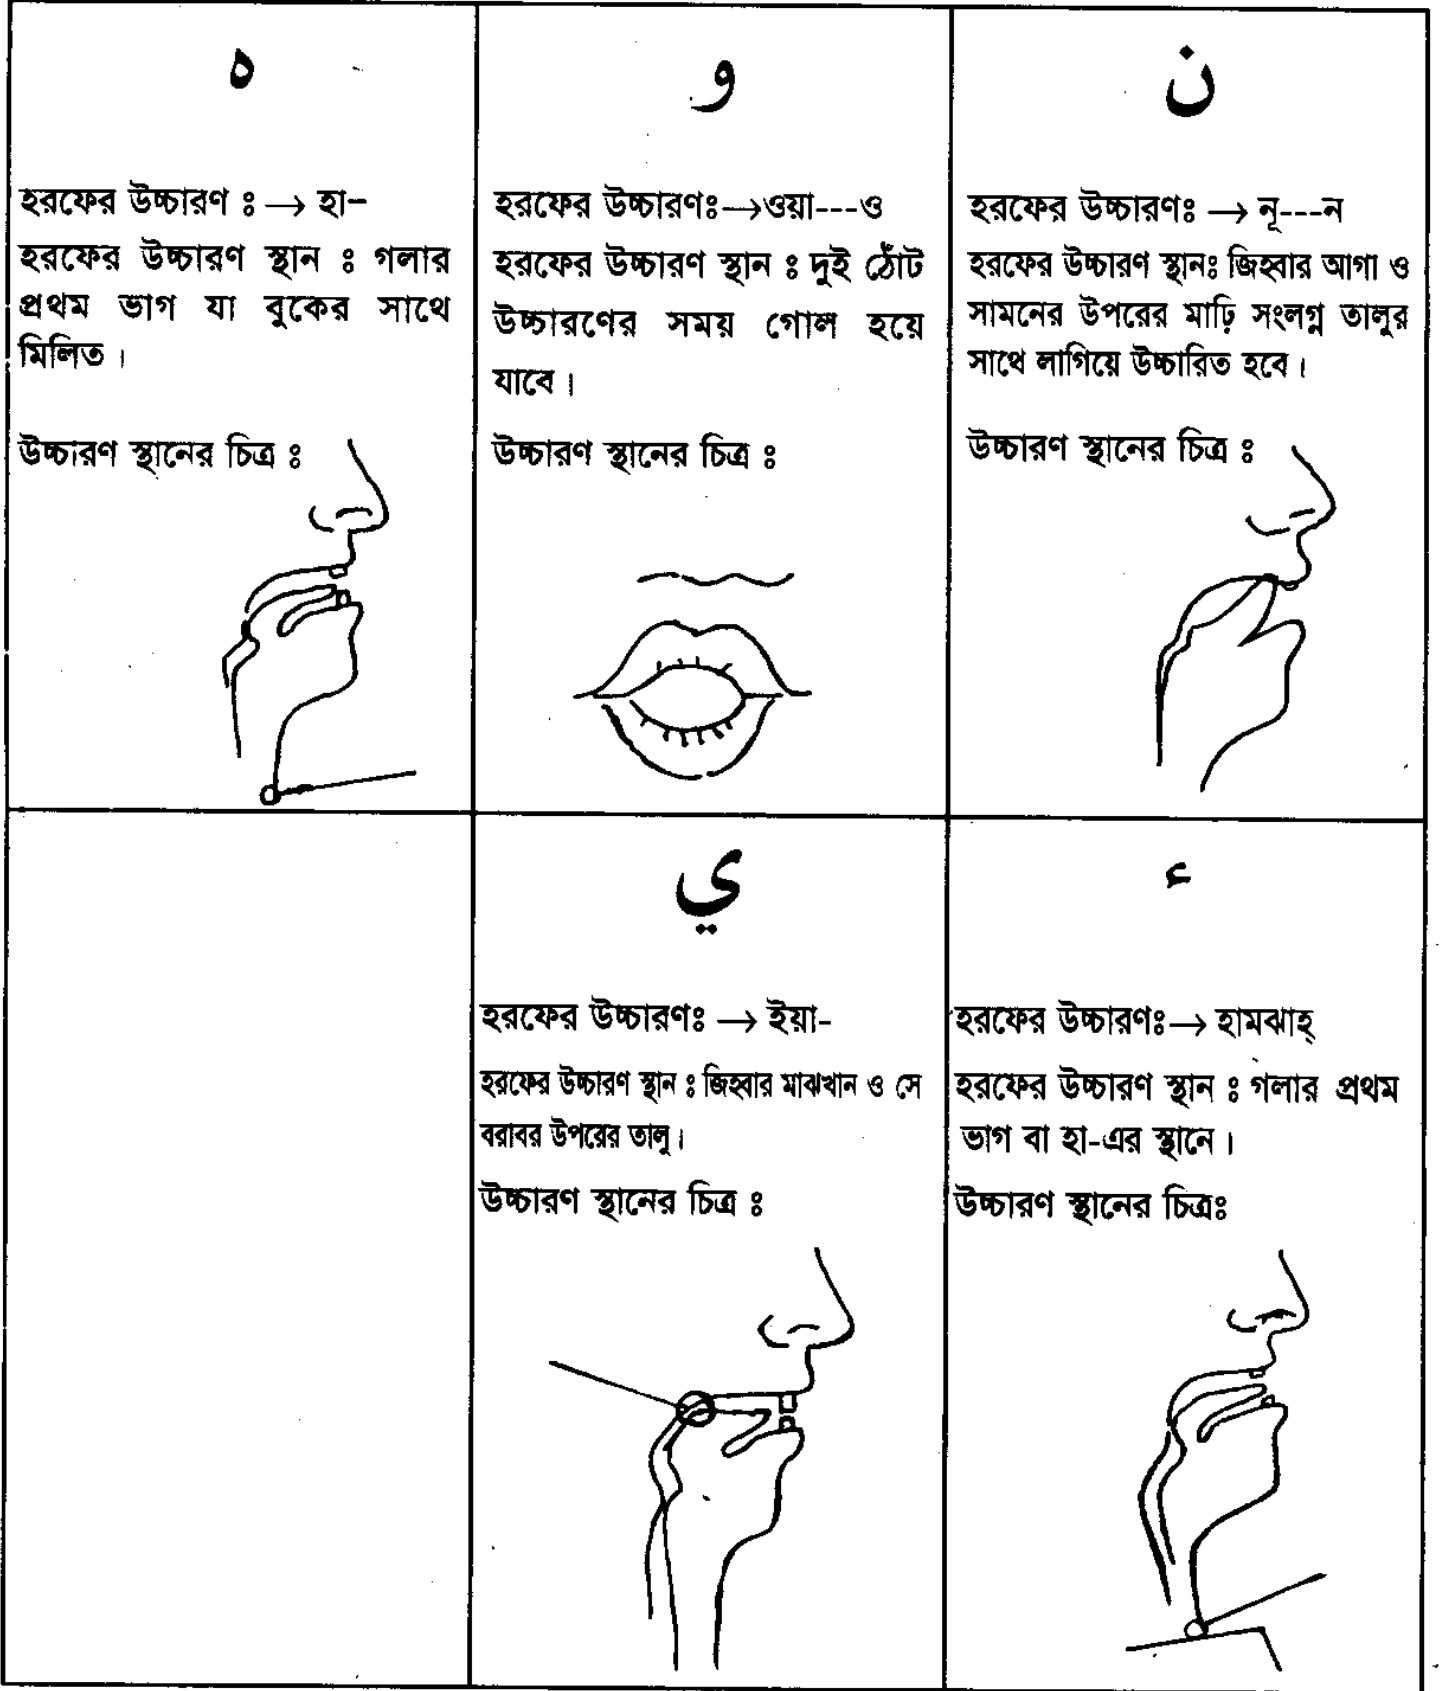 ه
হরফের উচ্চারণ ঃ → হা-
হরফের উচ্চারণ স্থান ঃ গলার
প্রথম ভাগ যা বুকের সাথে
মিলিত।
উচ্চারণ স্থানের চিত্র ঃ
و
হরফের উচ্চারণঃ→ওয়া---ও
হরফের উচ্চারণ স্থান ঃ দুই ঠোঁট
উচ্চারণের সময় গোল হয়ে
যাবে।
উচ্চারণ স্থানের চিত্র ঃ
ن
হরফের উচ্চারণঃ → নূ---ন
হরফের উচ্চারণ স্থানঃ জিহ্বার আগা ও
সামনের উপরের মাঢ়ি সংলগ্ন তালুর
সাথে লাগিয়ে উচ্চারিত হবে।
উচ্চারণ স্থানের চিত্র ঃ
ي
হরফের উচ্চারণঃ → ইয়া-
হরফের উচ্চারণ স্থান ঃ জিহ্বার মাঝখান ও সে
বরাবর উপরের তালু।
উচ্চারণ স্থানের চিত্র ঃ
ء
হরফের উচ্চারণঃ→ হামঝাহ্
হরফের উচ্চারণ স্থান ঃ গলার প্রথম
ভাগ বা হা-এর স্থানে।
উচ্চারণ স্থানের চিত্রঃ